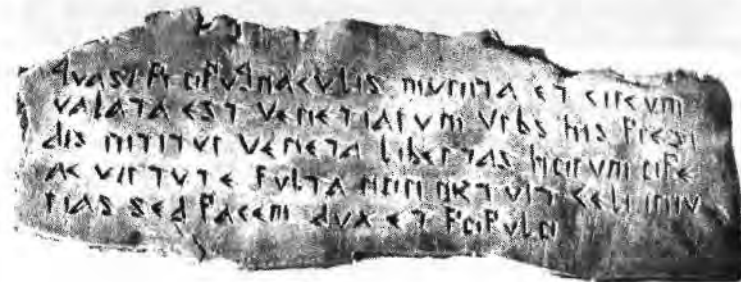 qvasi propvgnacvlis mvnita et circvm
valata est venetiarvm vrbs his presi
dis nititvr veneta libertas horvm ope
ac virtvte fvlta non metvit celi iniv
rias sed pacem dvx et popvlo